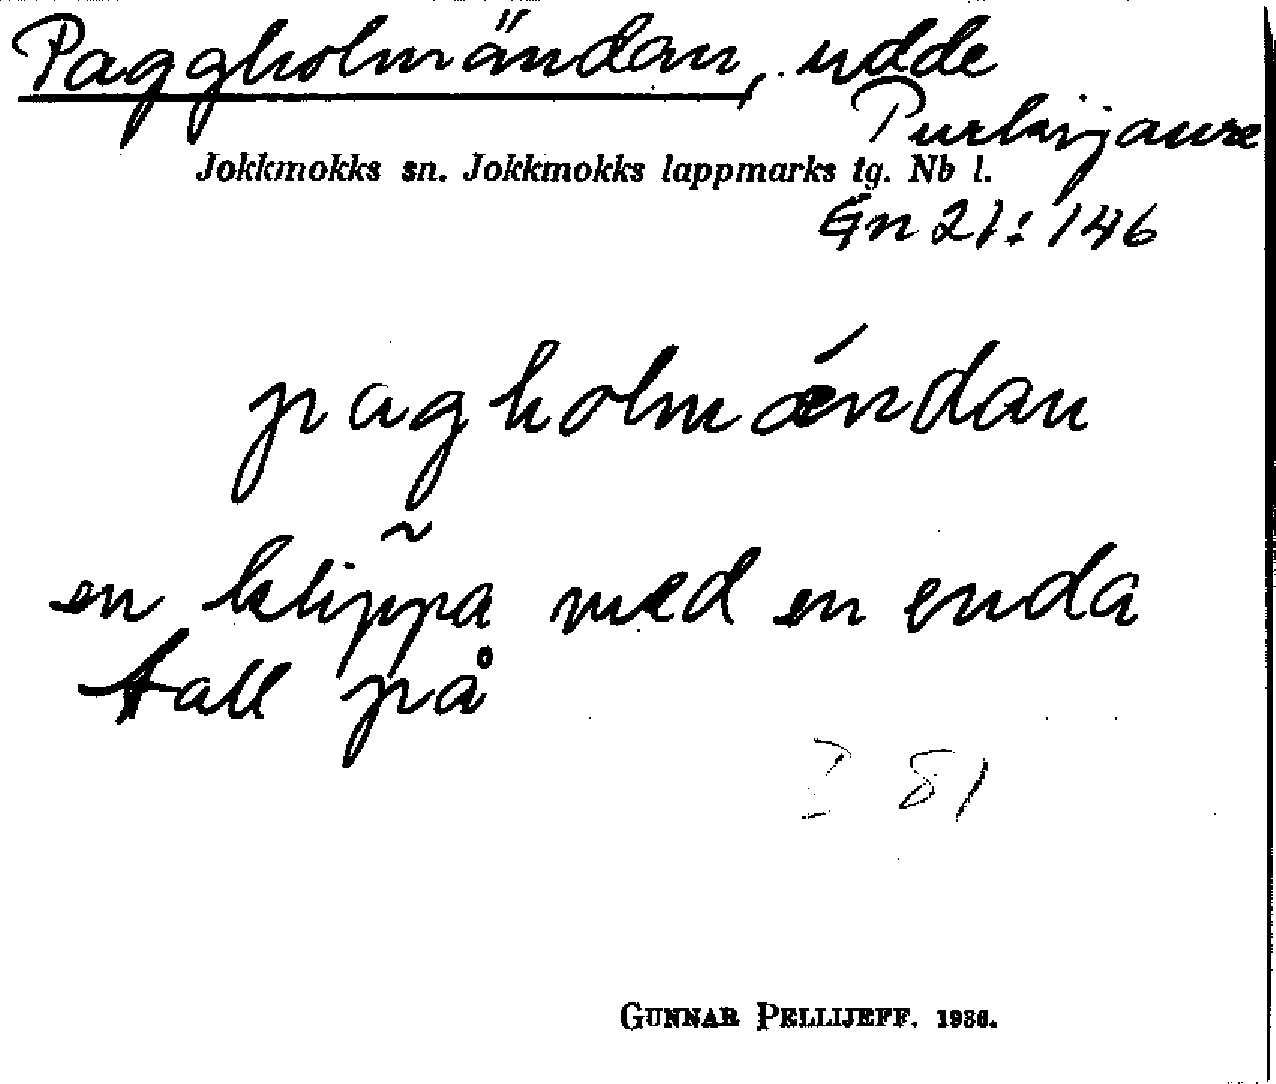 Paggholmändan, udde
Purkijaure
Jokkmokks sn. Jokkmokks lappmarks tg. Nb l.
Gn 21:146
pagholmǽndan
en klip̃pa med en enda
tall på
I 81
GUNNAR PELLIJEFF. 1936.